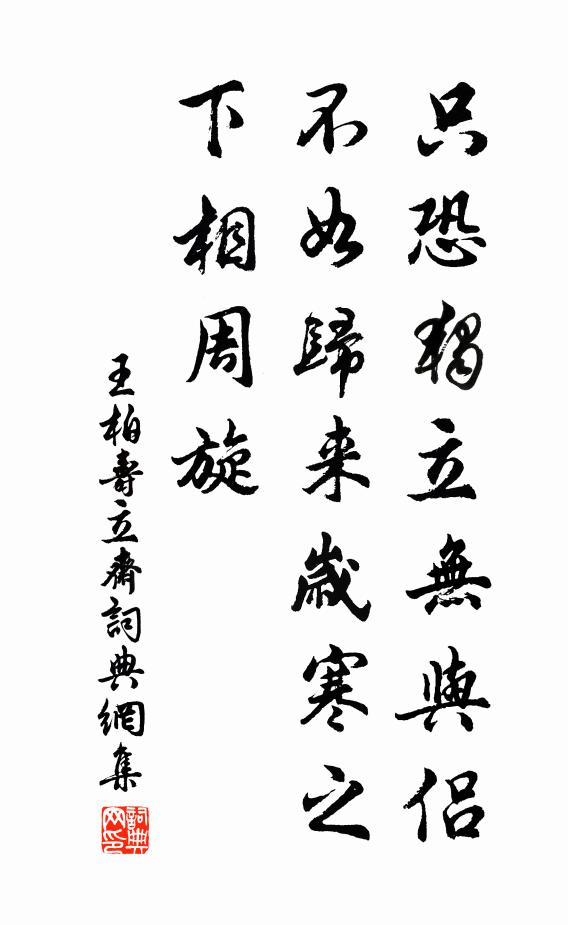 只恐獨立無與侶
不如歸来歲寒之
下相周旋
王柏壽立齋詞典網集
詞典网印